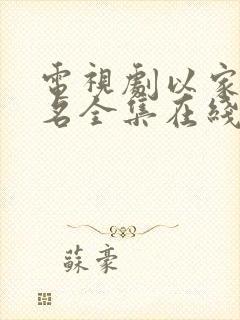 電視劇以家
名全集在綫
蘇豪